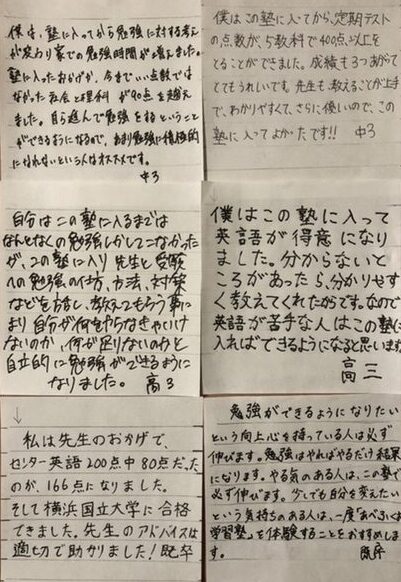 僕は、塾に入ってから勉強に対する考え
が変わり家での勉強時間が増えました。
塾に入ったおかげか、今までいい点数では
なかった社会と理科が90点を越え
ました。自ら進んで勉強をするということ
ができるようになるので、あまり勉強に積極的
になれないという人はオススメです。
中3
僕はこの塾に入ってから、定期テスト
の点数が、5教科で400点以上を
とることができました。成績も3つあがって
とてもうれしいです。先生も、教えることが上手
で、わかりやすくて、さらに優しいので、この
塾に入ってよかったです!! 中3
自分はこの塾に入るまでは
なんとなくの勉強しかしてこなかった
が、この塾に入り先生と受験
への勉強の仕方、方法、対策
などを話し、教えてもらう事に
より自分が何をやらなきゃいけ
ないのか、何が足りないのかと
自立的に勉強ができるように
なりました。 高3
僕はこの塾に入って
英語が得意になり
ました。分からないと
ころがあったら、分かりやす
く教えてくれたからです。なので
英語が苦手な人はこの塾に
入ればできるようになると思います
高三
↓
私は先生のおかげで、
センター英語200点中80点だった
のが、166点になりました。
そして横浜国立大学に合格
できました。先生のアドバイスは
適切で助かりました！既卒
勉強ができるようになりたい
という向上心を持っている人は必ず
伸びます。勉強はやればやるだけ結果
になります。やる気のある人は、この塾で
必ず伸びます。少しでも自分を変えたい
という気持ちのある人は、一度「あべふくろう
学習塾」を体験することをおすすめしま
す。 既卒